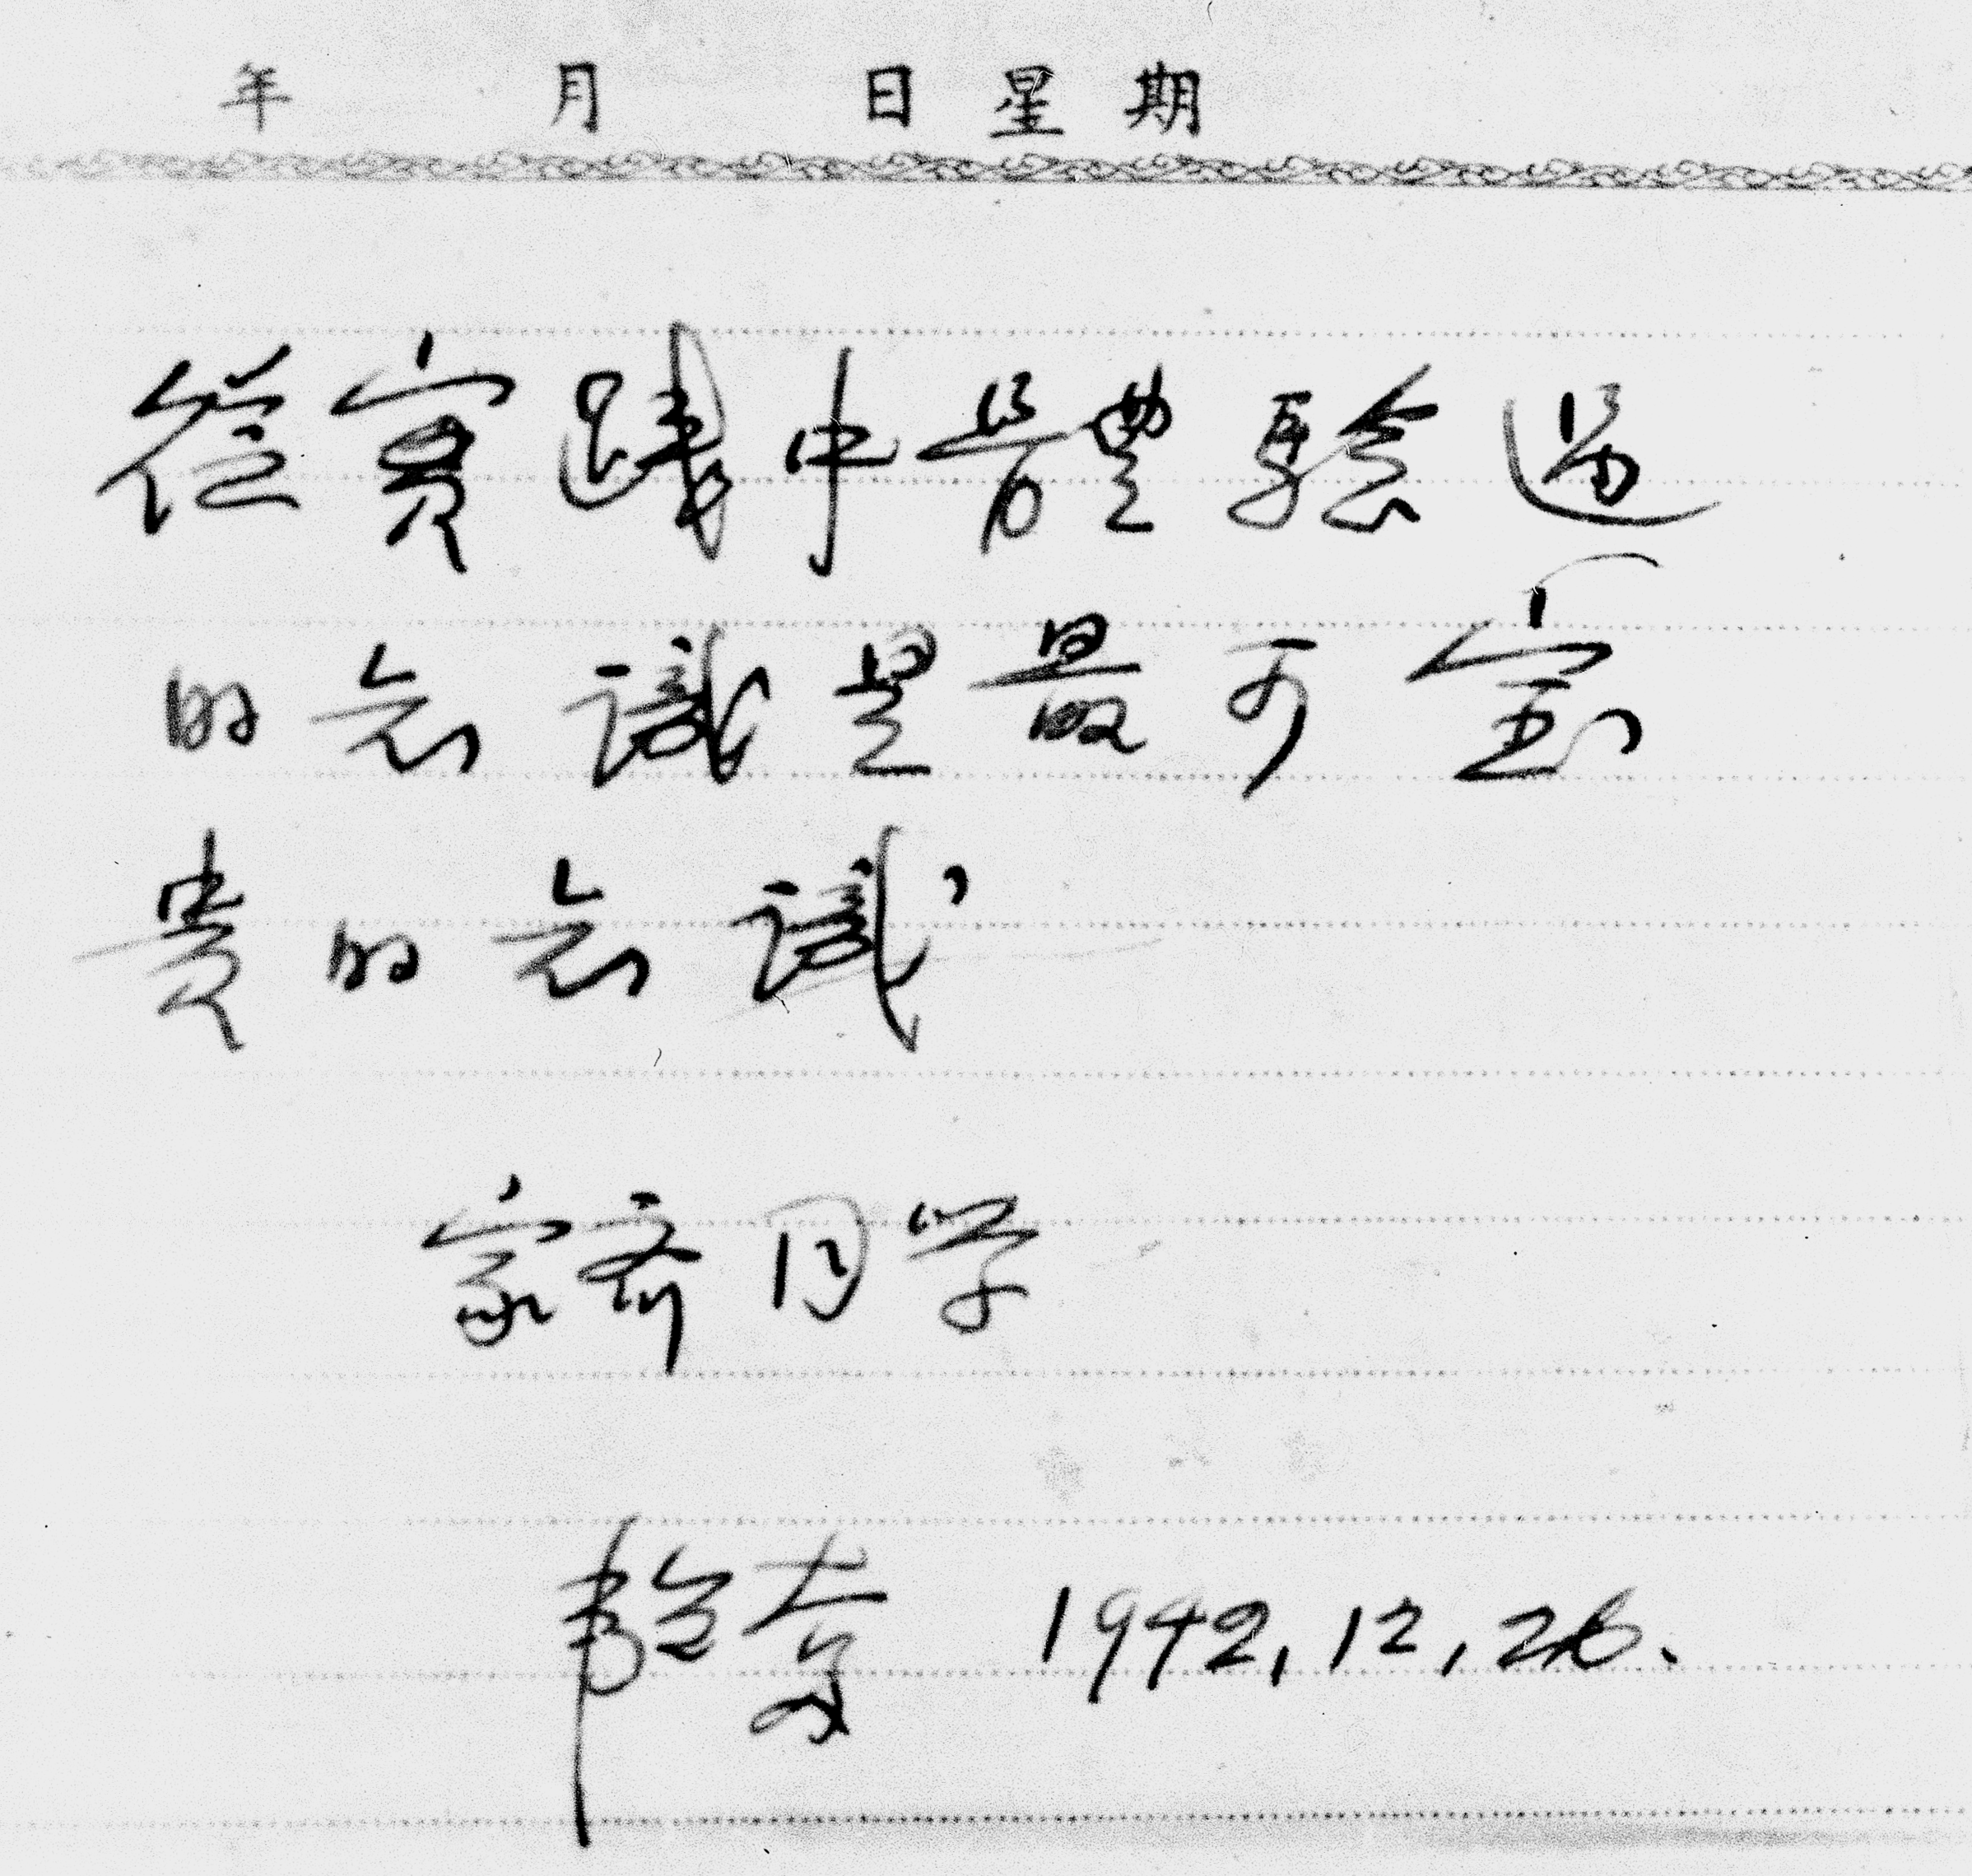 年 月 日 星期
從實踐中體驗過
的知識是最可宝
貴的知識,
家齐同学
韜奮 1942,12,26.